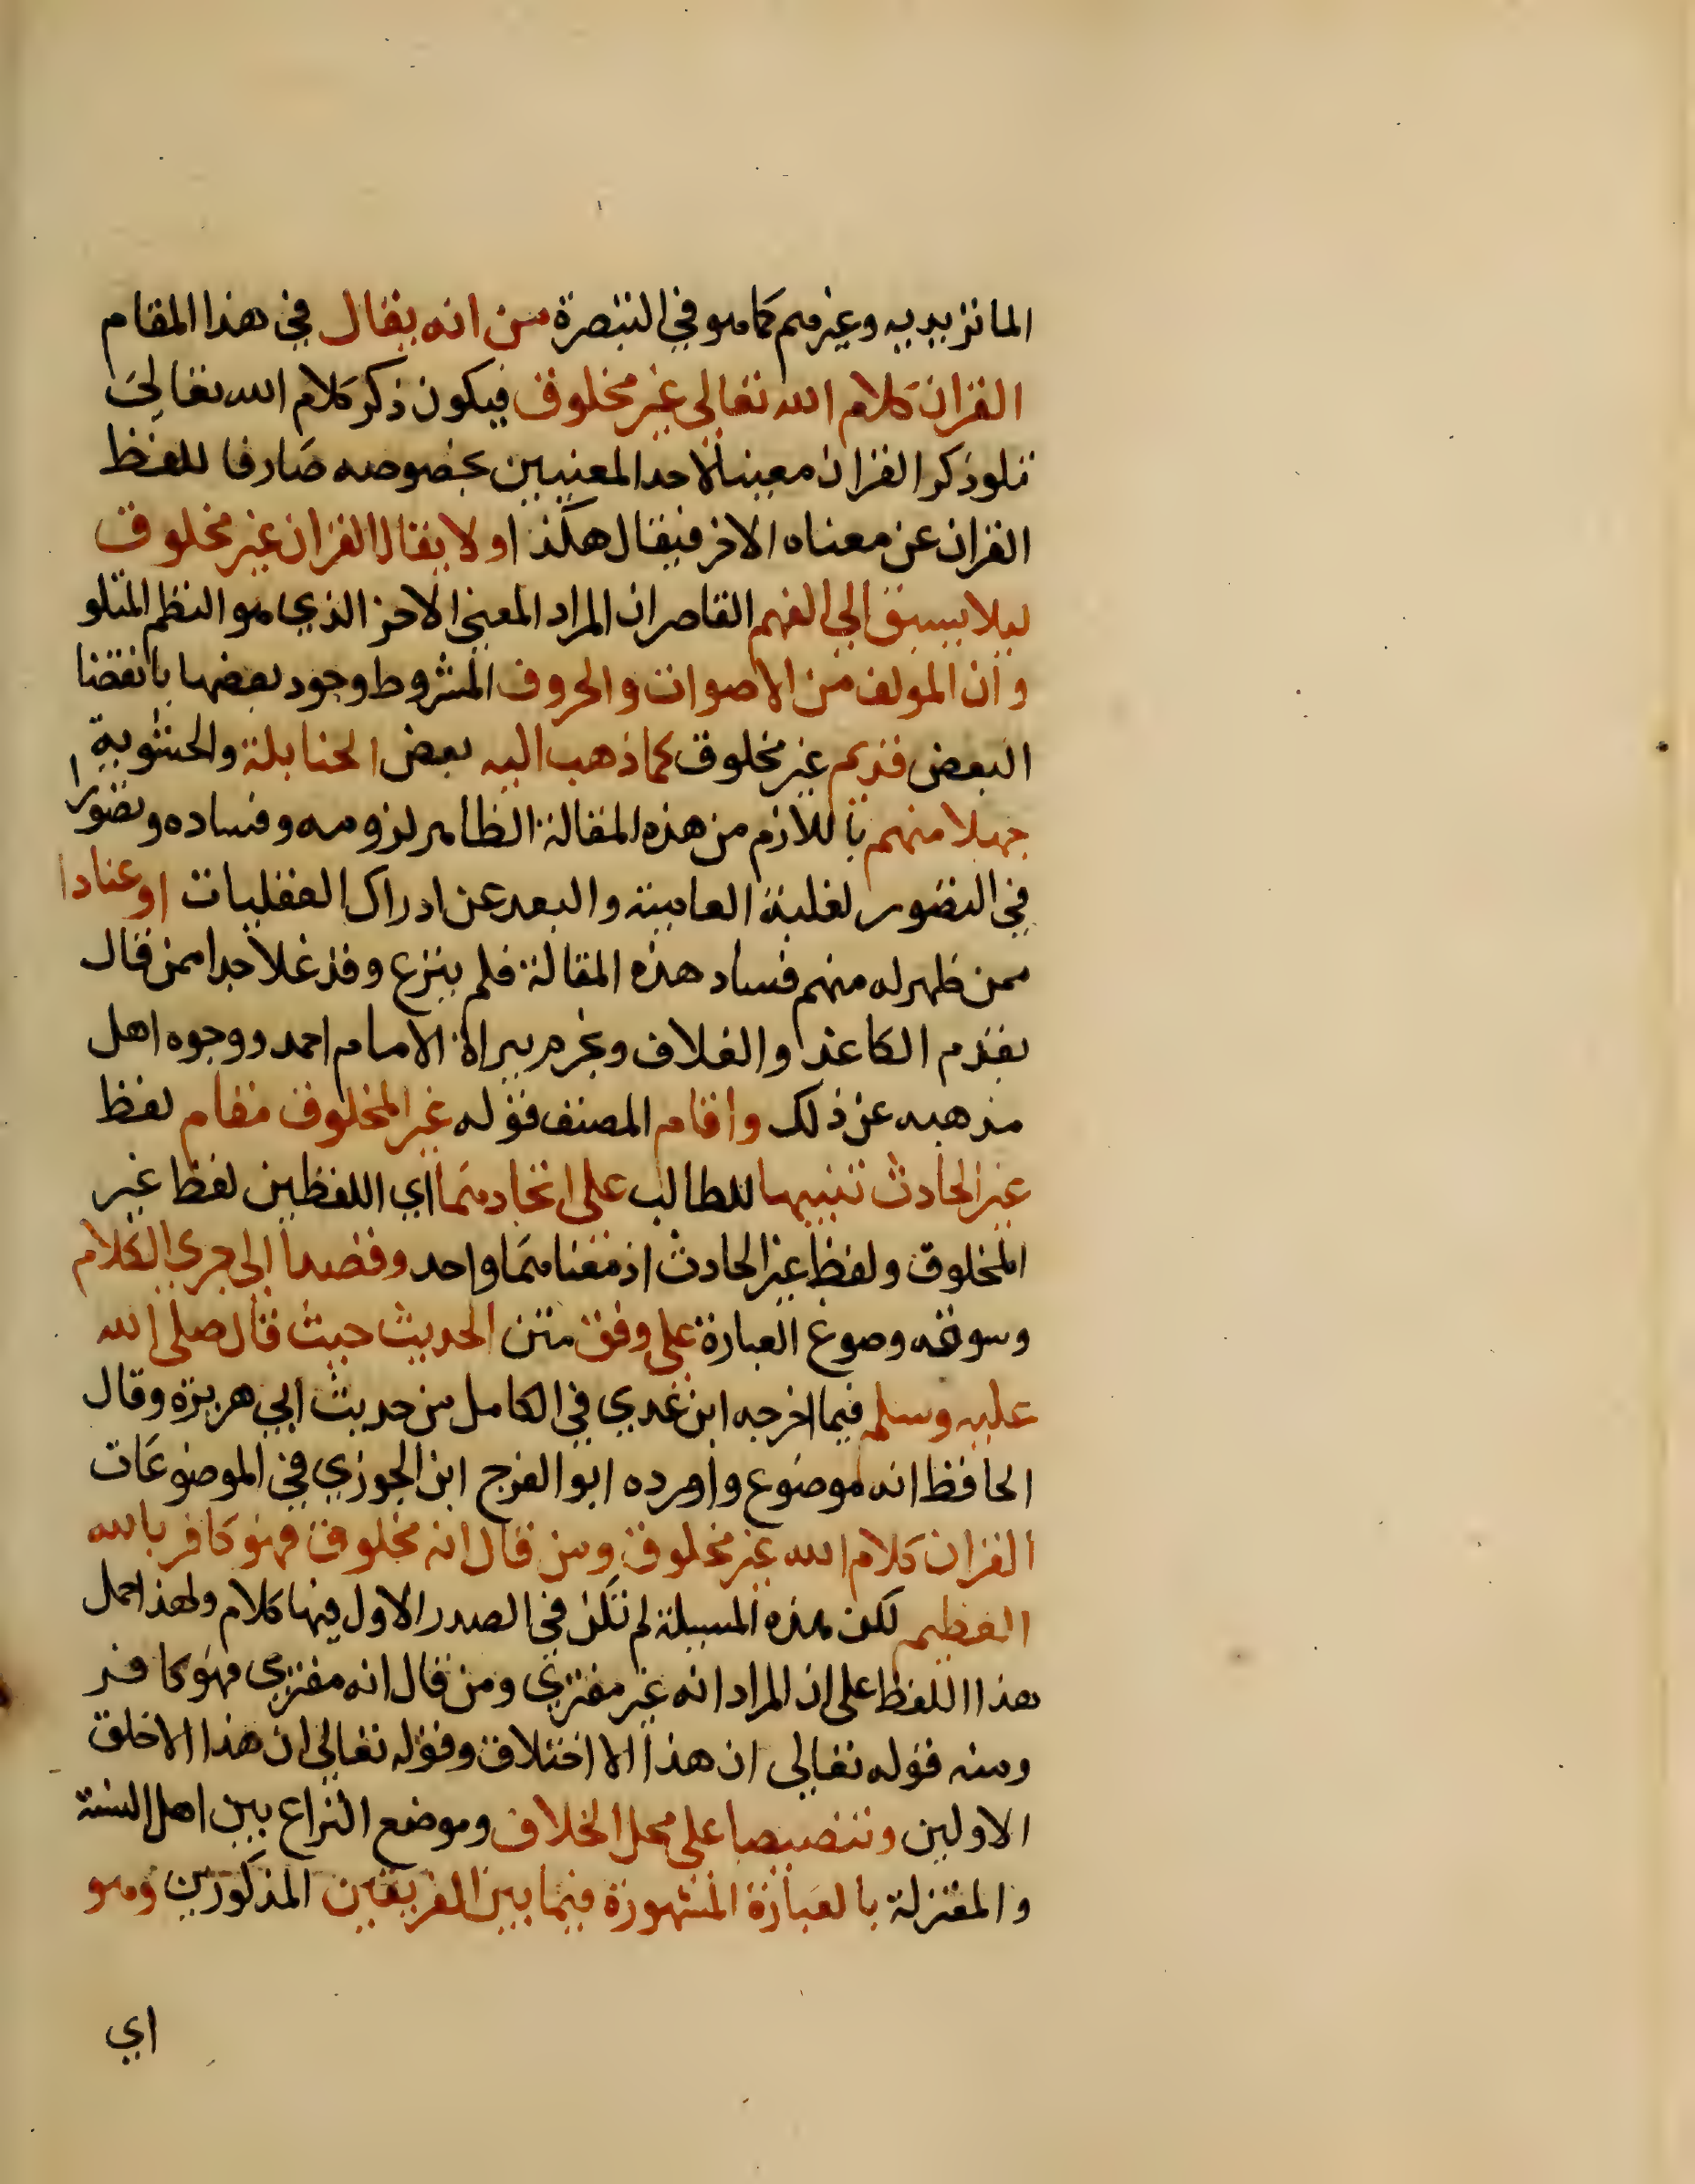 الماتريديه وغيرهم كما هو في التبصرة من انه يقال في هذا المقام
القران كلام الله تعالى غير مخلوق فيكون ذكر كلام الله تعالى
تلو ذكر القران معينا لاحد المعنيين بخصوصه صارفا للفظ
القران عن معناه الاخر فيقال هكذا ولا يقال القران غير مخلوق
ليلا يسبق الى الفهم القاصر ان المراد المعنى الاخر الذي هو النظم المتلو
وان المولف من الاصوات والحروف المشروط وجود بعضها بانقضا
البعض قديم غير مخلوق كما ذهب اليه بعض الحنابلة والحشوية
جهلا منهم باللازم من هذه المقالة الظاهر لزومه وفساده وتصورا
في التصور لغلبة العامية والبعد عن ادراك العقليات او عنادا
ممن ظهر له منهم فساد هذه المقالة فلم ينزع وقد غلا جدا ممن قال
بقدم الكاغد والغلاف ونجزم ببراة الامام احمد ووجوه اهل
مذهبه عن ذلك واقام المصنف قوله غير المخلوق مقام لفظ
غير الحادث تنبيها للطالب على اتحادهما اي اللفظين لفظ غير
المخلوق ولفظ غير الحادث اذ معناهما واحد وقصدا الى جري الكلام
وسوقه وصوغ العبارة على وفق متن الحديث حيث قال صلى الله
عليه وسلم فيما اخرجه ابن عدي في الكامل من حديث ابي هريرة وقال
الحافظ انه موضوع واورده ابو الفرج ابن الجوزي في الموضوعات
القران كلام الله غير مخلوق ومن قال انه مخلوق فهو كافر بالله
العظيم لكن هذه المسيلة لم تكن في الصدر الاول فيها كلام ولهذا حمل
هذا اللفظ على ان المراد انه غير مفتري ومن قال انه مفتري فهو كافر
ومنه قوله تعالى ان هذا الا اختلاق وقوله تعالى ان هذا الا خلق
الاولين وتنصيصا على محل الخلاف وموضع النزاع بين اهل السنة
والمعتزلة بالعبارة المشهورة فيما بين الفريقين المذكورين وهو
اي